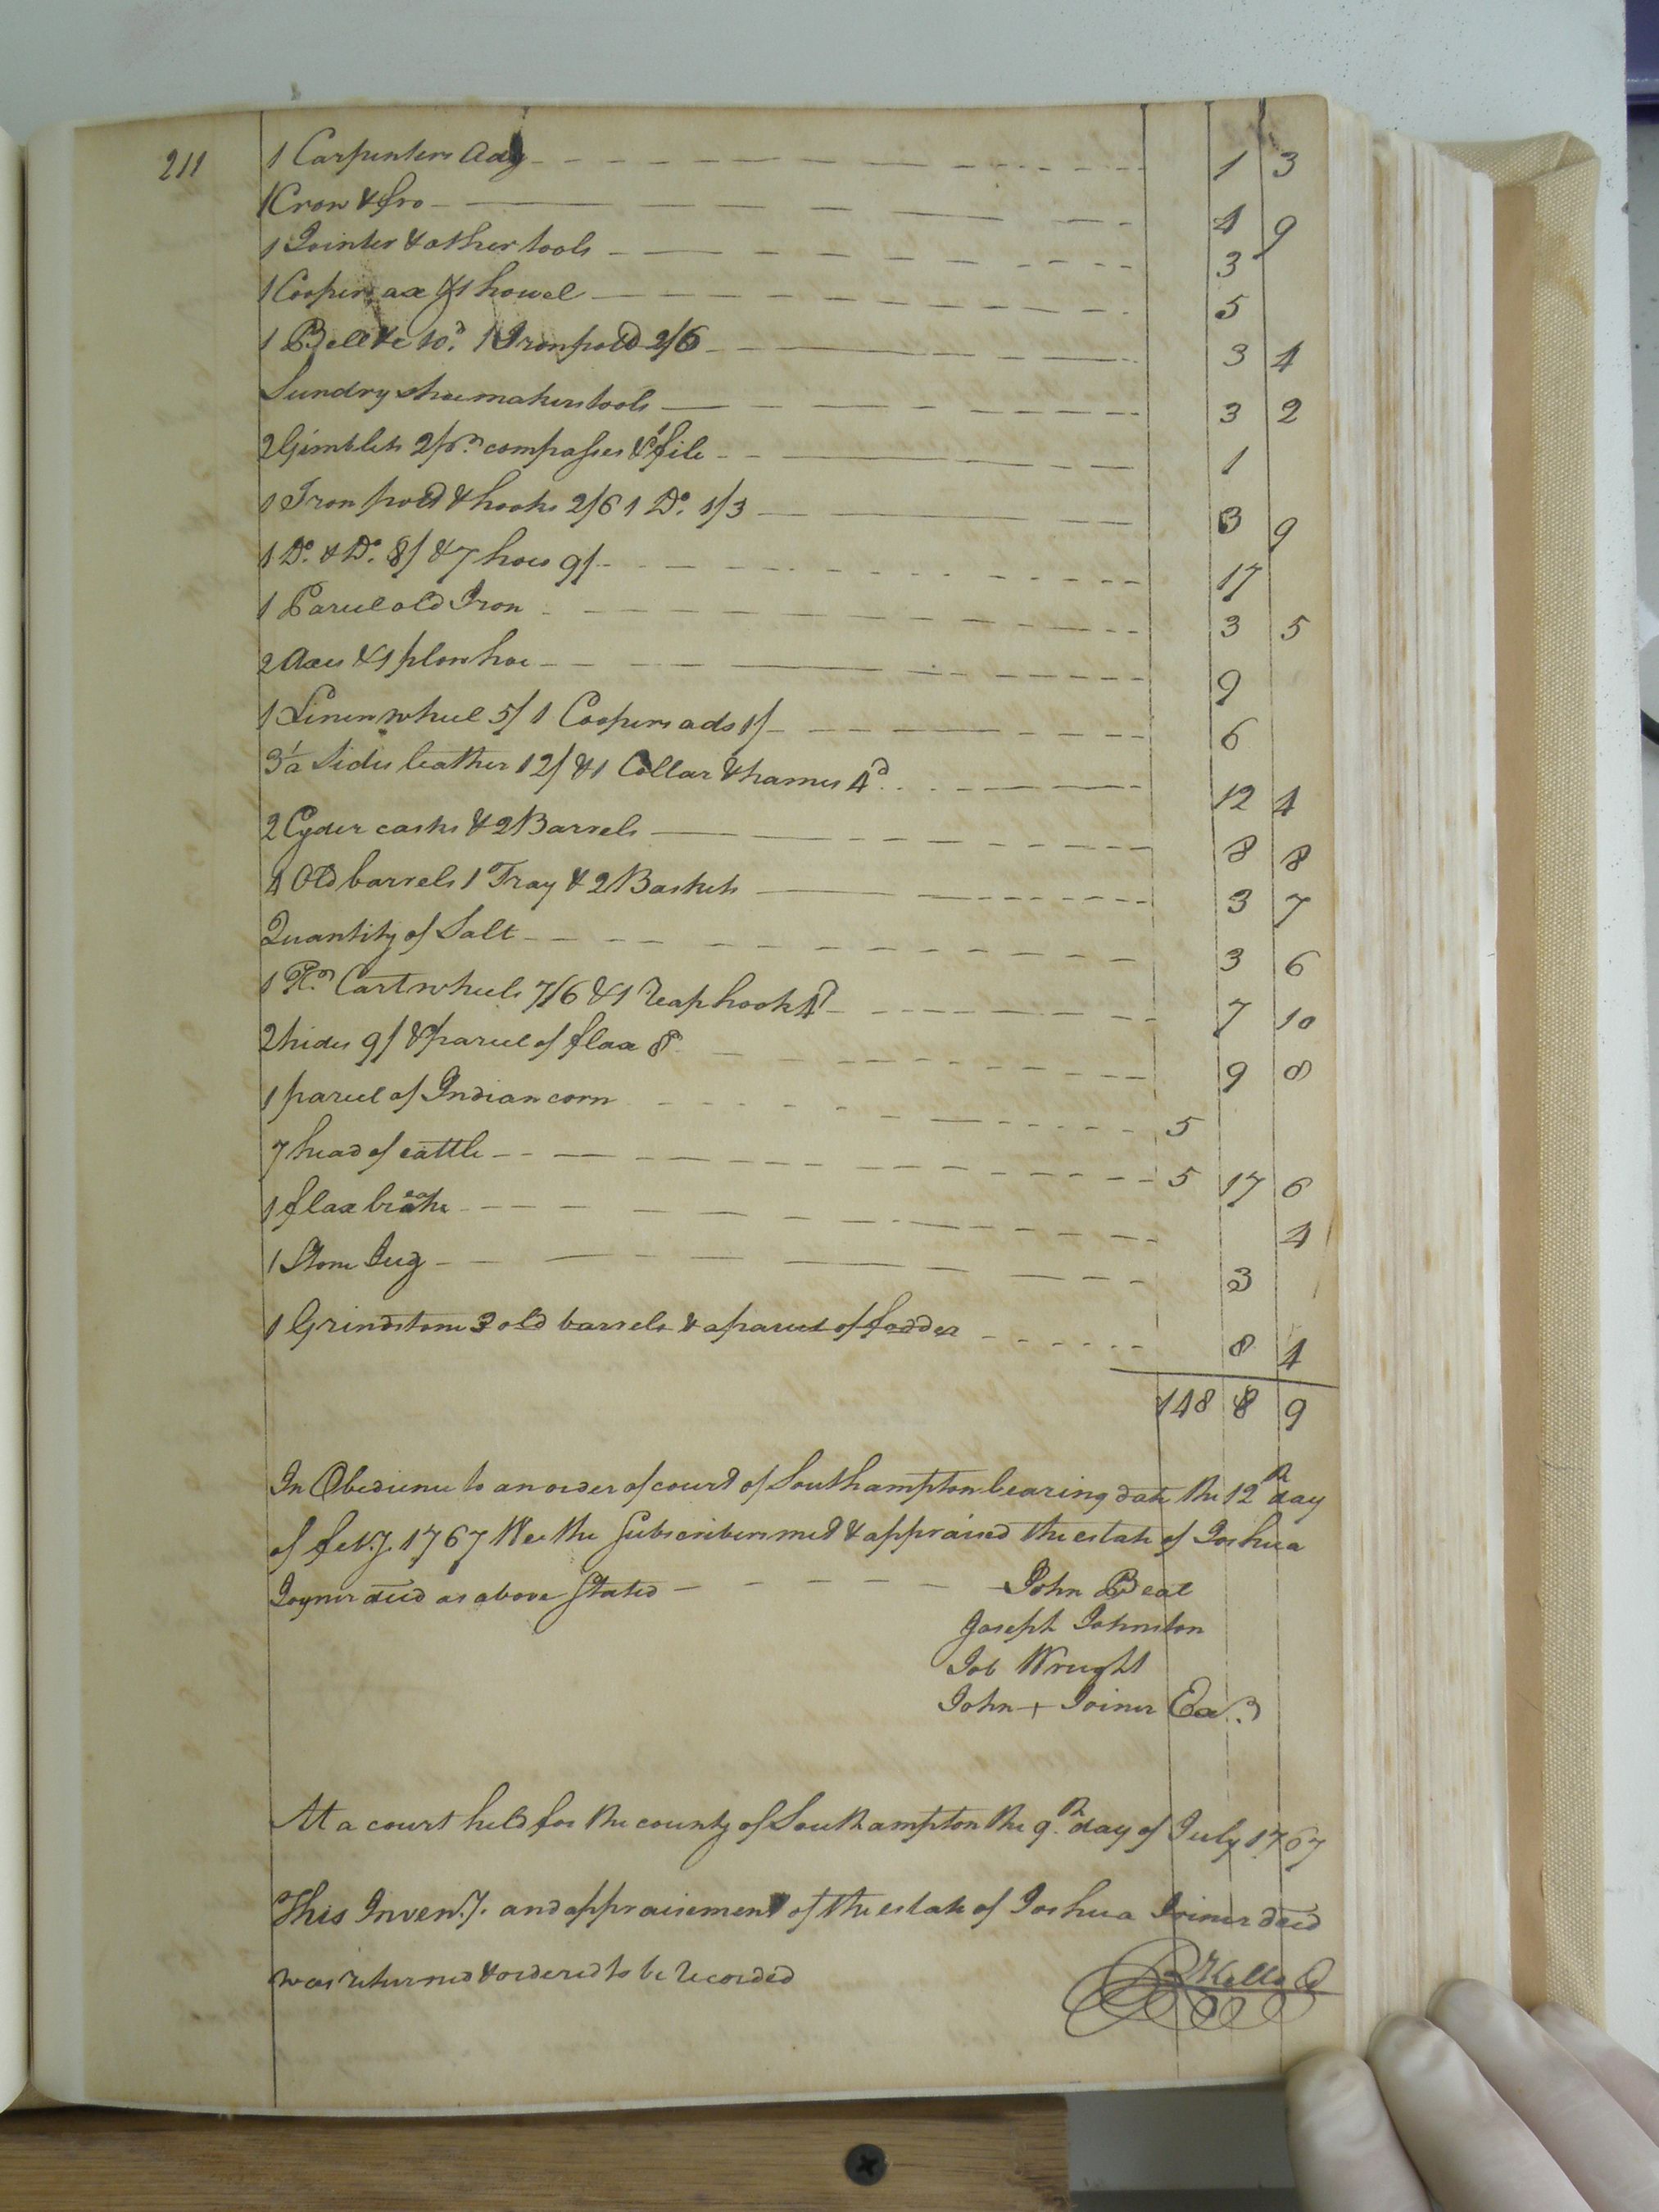 211
1 Carpenters adz 1 3
1 Crow & fro 4 9
1 Jointer & other tools 3
1 Coopers ax & 1 howel 5
1 Bell &c 10d. 1 Iron pott 2/6 3 4
Sundry shoemakers tools 3 2
2 Gimblets 2 pr. compasses & 1 file 1
1 Iron pott & hooks 2/6 1 Do. 1/3 3 9
1 Do. & Do. 8/ & 7 hoes 9/ 17
1 Parcel old Iron 3 5
2 Axes & 1 plow hoe 9
1 Linen wheel 5/ 1 Coopers ads 1/ 6
3 1/2 sides leather 12/ & 1 Collar & hames 4d. 12 4
2 Cyder casks & 2 Barrels 8 8
4 Old barrels 1 Tray & 2 Baskets 3 7
Quantity of Salt 3 6
1 Pr. Cart wheels 7/6 & 1 reap hook 4d 7 10
2 hides 9/ & parcel of flax 8d 9 8
1 parcel of Indian corn 5
7 head of cattle 5 17 6
1 flax brake 4
1 Stone Jug 3
1 Grindstone 3 old barrels & a parcel of fodder 8 4
148 8 9
In Obedience to an order of court of Southampton bearing date the 12th day
of febry. 1767 Wee the Subscribers met & appraised the estate of Joshua
Joyner decd as above Stated John Beal
Joseph Johnston
Job Wright
John + Joiner Exr.
At a court held for the county of Southampton the 9th day of July 1767
This Inventy. and appraisement of the estate of Joshua Joiner decd
was returned & ordered to be recorded